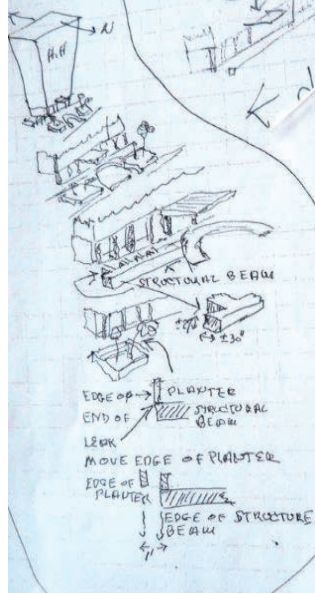 N
H.H
STRUCTURAL BEAM
±30"
EDGE OF → PLANTER
END OF STRUCTURAL
LEAK BEAM
MOVE EDGE OF PLANTER
EDGE OF
PLANTER
EDGE OF STRUCTURE
BEAM